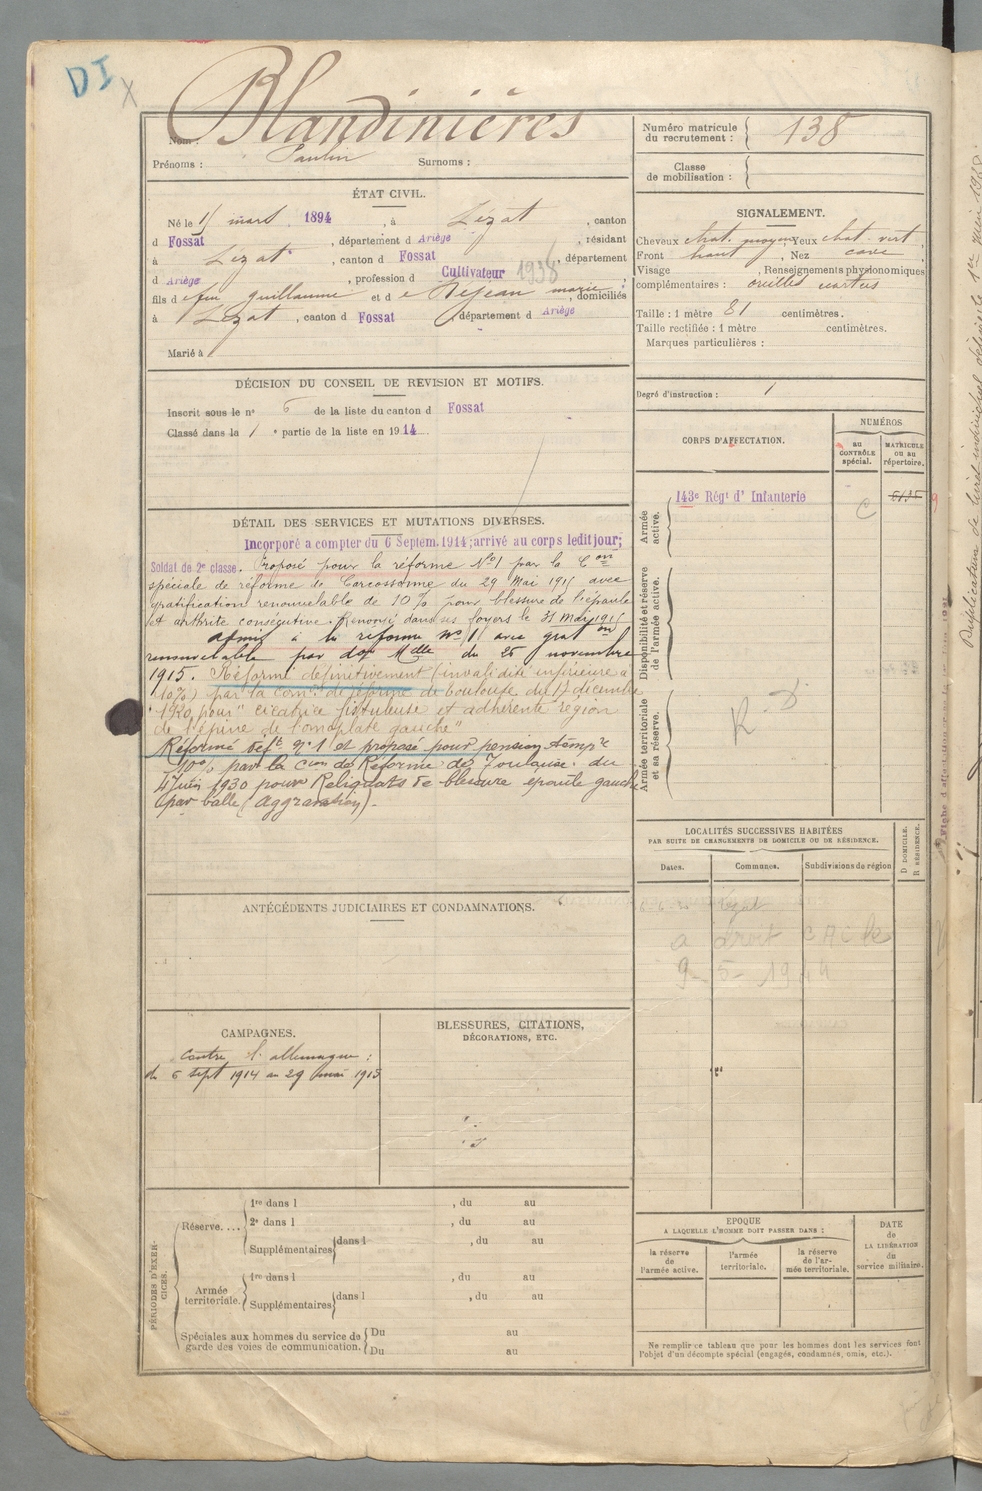 DI
X
Blandinières
Nom :
Prénoms : Paulin Surnoms :
Numéro matricule du recrutement : 138
Classe de mobilisation :
ÉTAT CIVIL.
Né le 15 mars 1894, à Lézat, canton
d Fossat, département d Ariège, résidant
à Lézat, canton d Fossat, département
d Ariège, profession d Cultivateur 1938,
fils de feu Guillaume et de Dejean marie, domiciliés
à Lézat, canton d Fossat, département d Ariège
Marié à
SIGNALEMENT.
Cheveux chat. moyen, Yeux chat. vert,
Front haut, Nez cave,
Visage , Renseignements physionomiques
complémentaires : oreilles
Taille : 1 mètre 81 centimètres.
Taille rectifiée : 1 mètre centimètres.
Marques particulières :
Degré d'instruction : 1
DÉCISION DU CONSEIL DE REVISION ET MOTIFS.
Inscrit sous le n° 6 de la liste du canton d Fossat
Classé dans la 1e partie de la liste en 1914.
DÉTAIL DES SERVICES ET MUTATIONS DIVERSES.
Incorporé a compter du 6 Septem. 1914; arrivé au corps ledit jour;
Soldat de 2e classe. Proposé pour la réforme No1 par la Con
spéciale de réforme de Carcassonne du 29 Mai 1915 avec
gratification renouvelable de 10% pour blessure de l'épaule
et arthrite consécutive. Renvoyé dans ses foyers le 31 Mai 1915
admis à la réforme no 1 avec graton
renouvelable par Mlle du 25 novembre
1915. Réformé définitivement (invalidité inférieure à
10%) par la comon de réforme de Toulouse du 17 décembre
1920 pour "cicatrice fistuleuse et adhérente région
de l'épine de l'omoplate gauche"
Réformé deft No 1 et proposé pour pension tempre
10% par la Con de Réforme de Toulouse du
4 Juin 1930 pour Reliquats de blessure épaule gauche
par balle (Aggravation).
CORPS D'AFFECTATION.
NUMÉROS
au CONTRÔLE spécial.
MATRICULE ou au répertoire.
Armée active.
143e Régt d'Infanterie
C
Disponibilité et réserve de l'armée active.
Armée territoriale et sa réserve.
R D
LOCALITÉS SUCCESSIVES HABITÉES
PAR SUITE DE CHANGEMENTS DE DOMICILE OU DE RÉSIDENCE.
Dates.
Communes.
Subdivisions de région
D DOMICILE.
R RÉSIDENCE.
Lézat
a droit CAC le
9-5-1944
ANTÉCÉDENTS JUDICIAIRES ET CONDAMNATIONS.
CAMPAGNES.
Contre l'allemagne :
du 6 sept 1914 au 29 mai 1915
BLESSURES, CITATIONS,
DÉCORATIONS, ETC.
PÉRIODES D'EXERCICES.
Réserve....
1re dans l , du au
2e dans l , du au
Supplémentaires dans l , du au
Armée territoriale.
1re dans l , du au
Supplémentaires dans l , du au
Spéciales aux hommes du service de garde des voies de communication.
Du au
Du au
EPOQUE
A LAQUELLE L'HOMME DOIT PASSER DANS :
la réserve de l'armée active.
l'armée territoriale.
la réserve de l'armée territoriale.
DATE de LA LIBÉRATION du service militaire.
Ne remplir ce tableau que pour les hommes dont les services font
l'objet d'un décompte spécial (engagés, condamnés, omis, etc.).
Duplication de livret individuel délivré le 1er juin 1918.